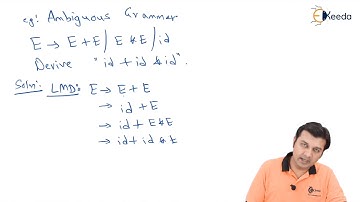 eg: Ambiguous Grammar
E → E + E / E * E / id
Derive "id + id * id".
Soln: LMD: E → E + E
→ id + E
→ id + E * E
→ id + id * E
Ekeeda